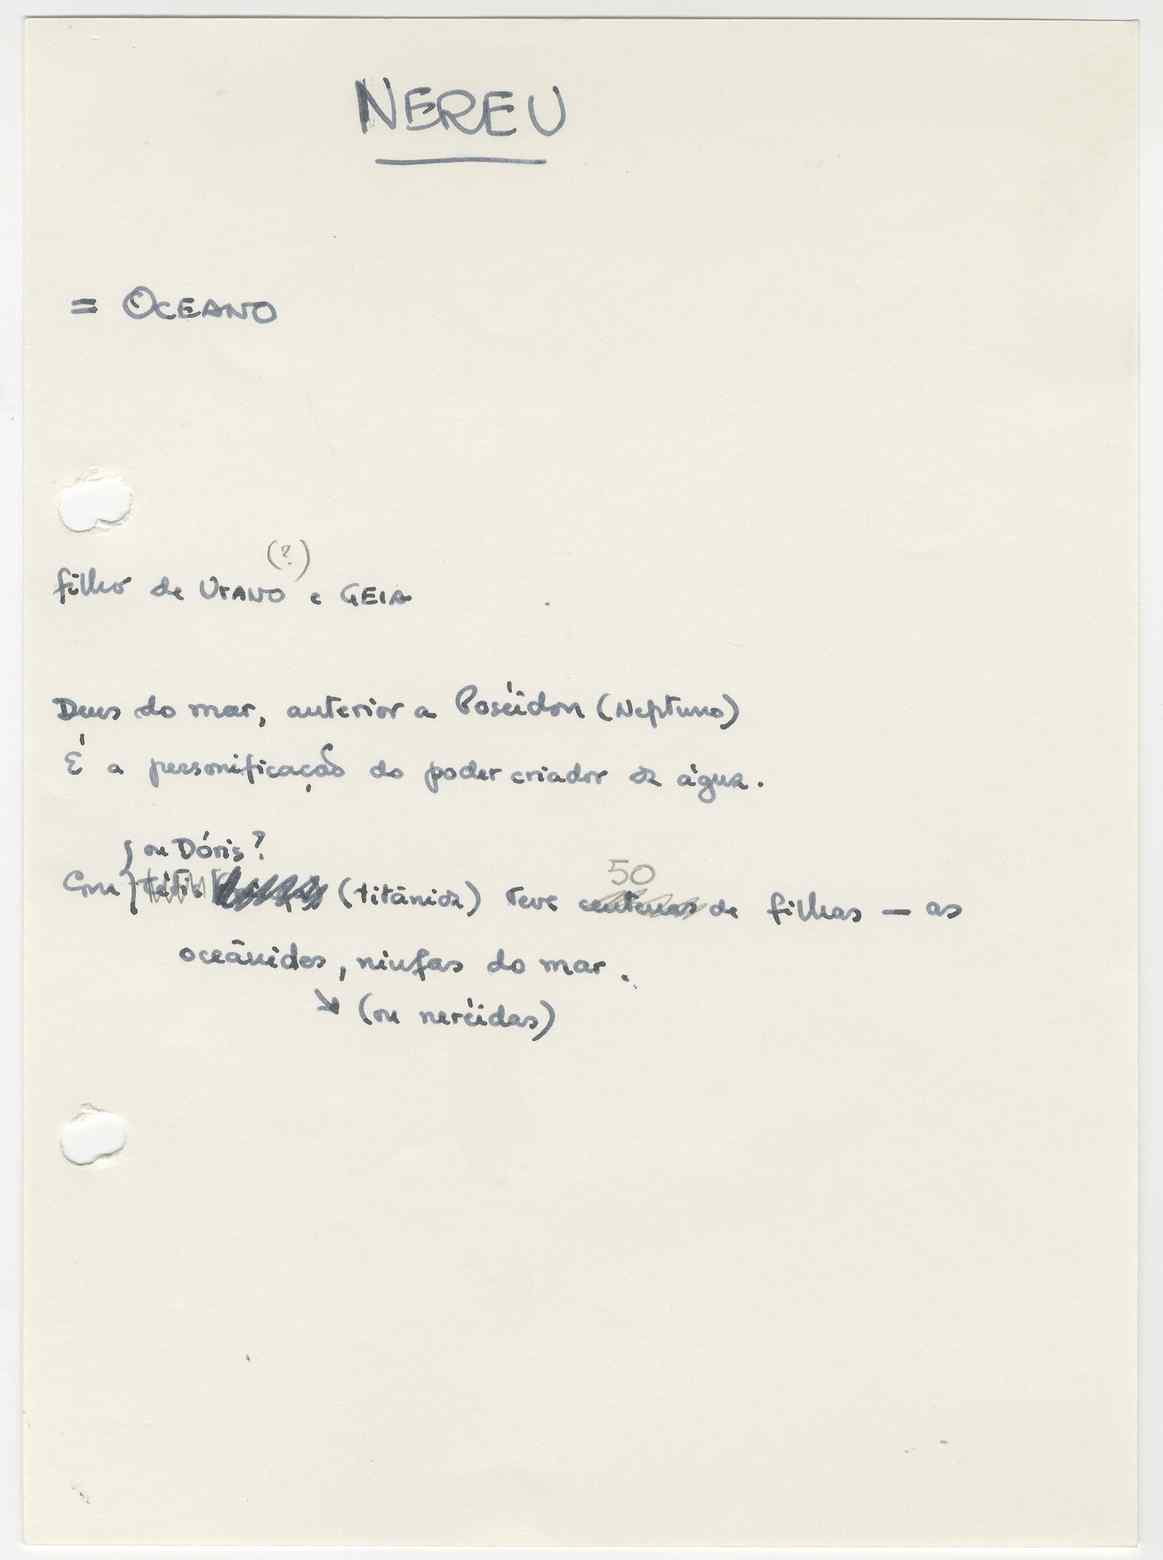 NEREU
= OCEANO
(?)
filho de UrANO e GEIA
Deus do mar, anterior a Poséidon (Neptuno)
É a personificação do poder criador da água.
ou Dóris?
50
Com Tétis (titânida) teve centenas de filhas — as
oceânides, ninfas do mar.
↘ (ou neréidas)